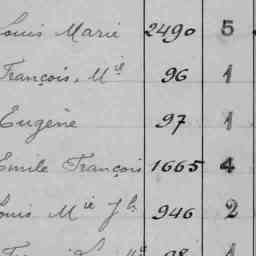 Louis Marie 2490 5
François, Mel 96 1
Eugène 97 1
Emile François 1665 4
Louis Mie Jh 946 2
98 1